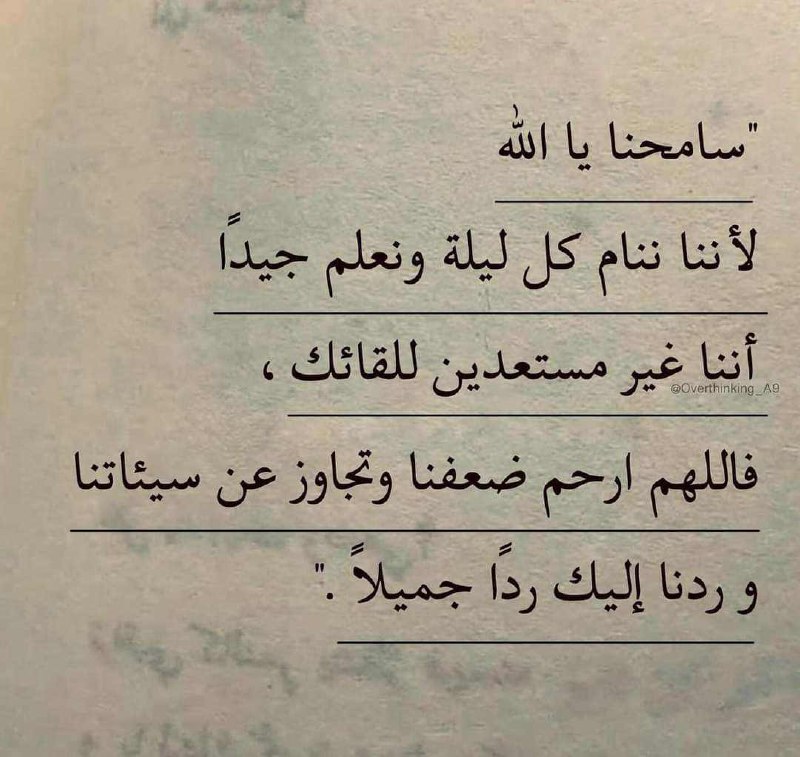 "سامحنا يا الله
لأننا ننام كل ليلة ونعلم جيدًا
أننا غير مستعدين للقائك ،
@Overthinking_A9
فاللهم ارحم ضعفنا وتجاوز عن سيئاتنا
و ردنا إليك ردًا جميلاً ."